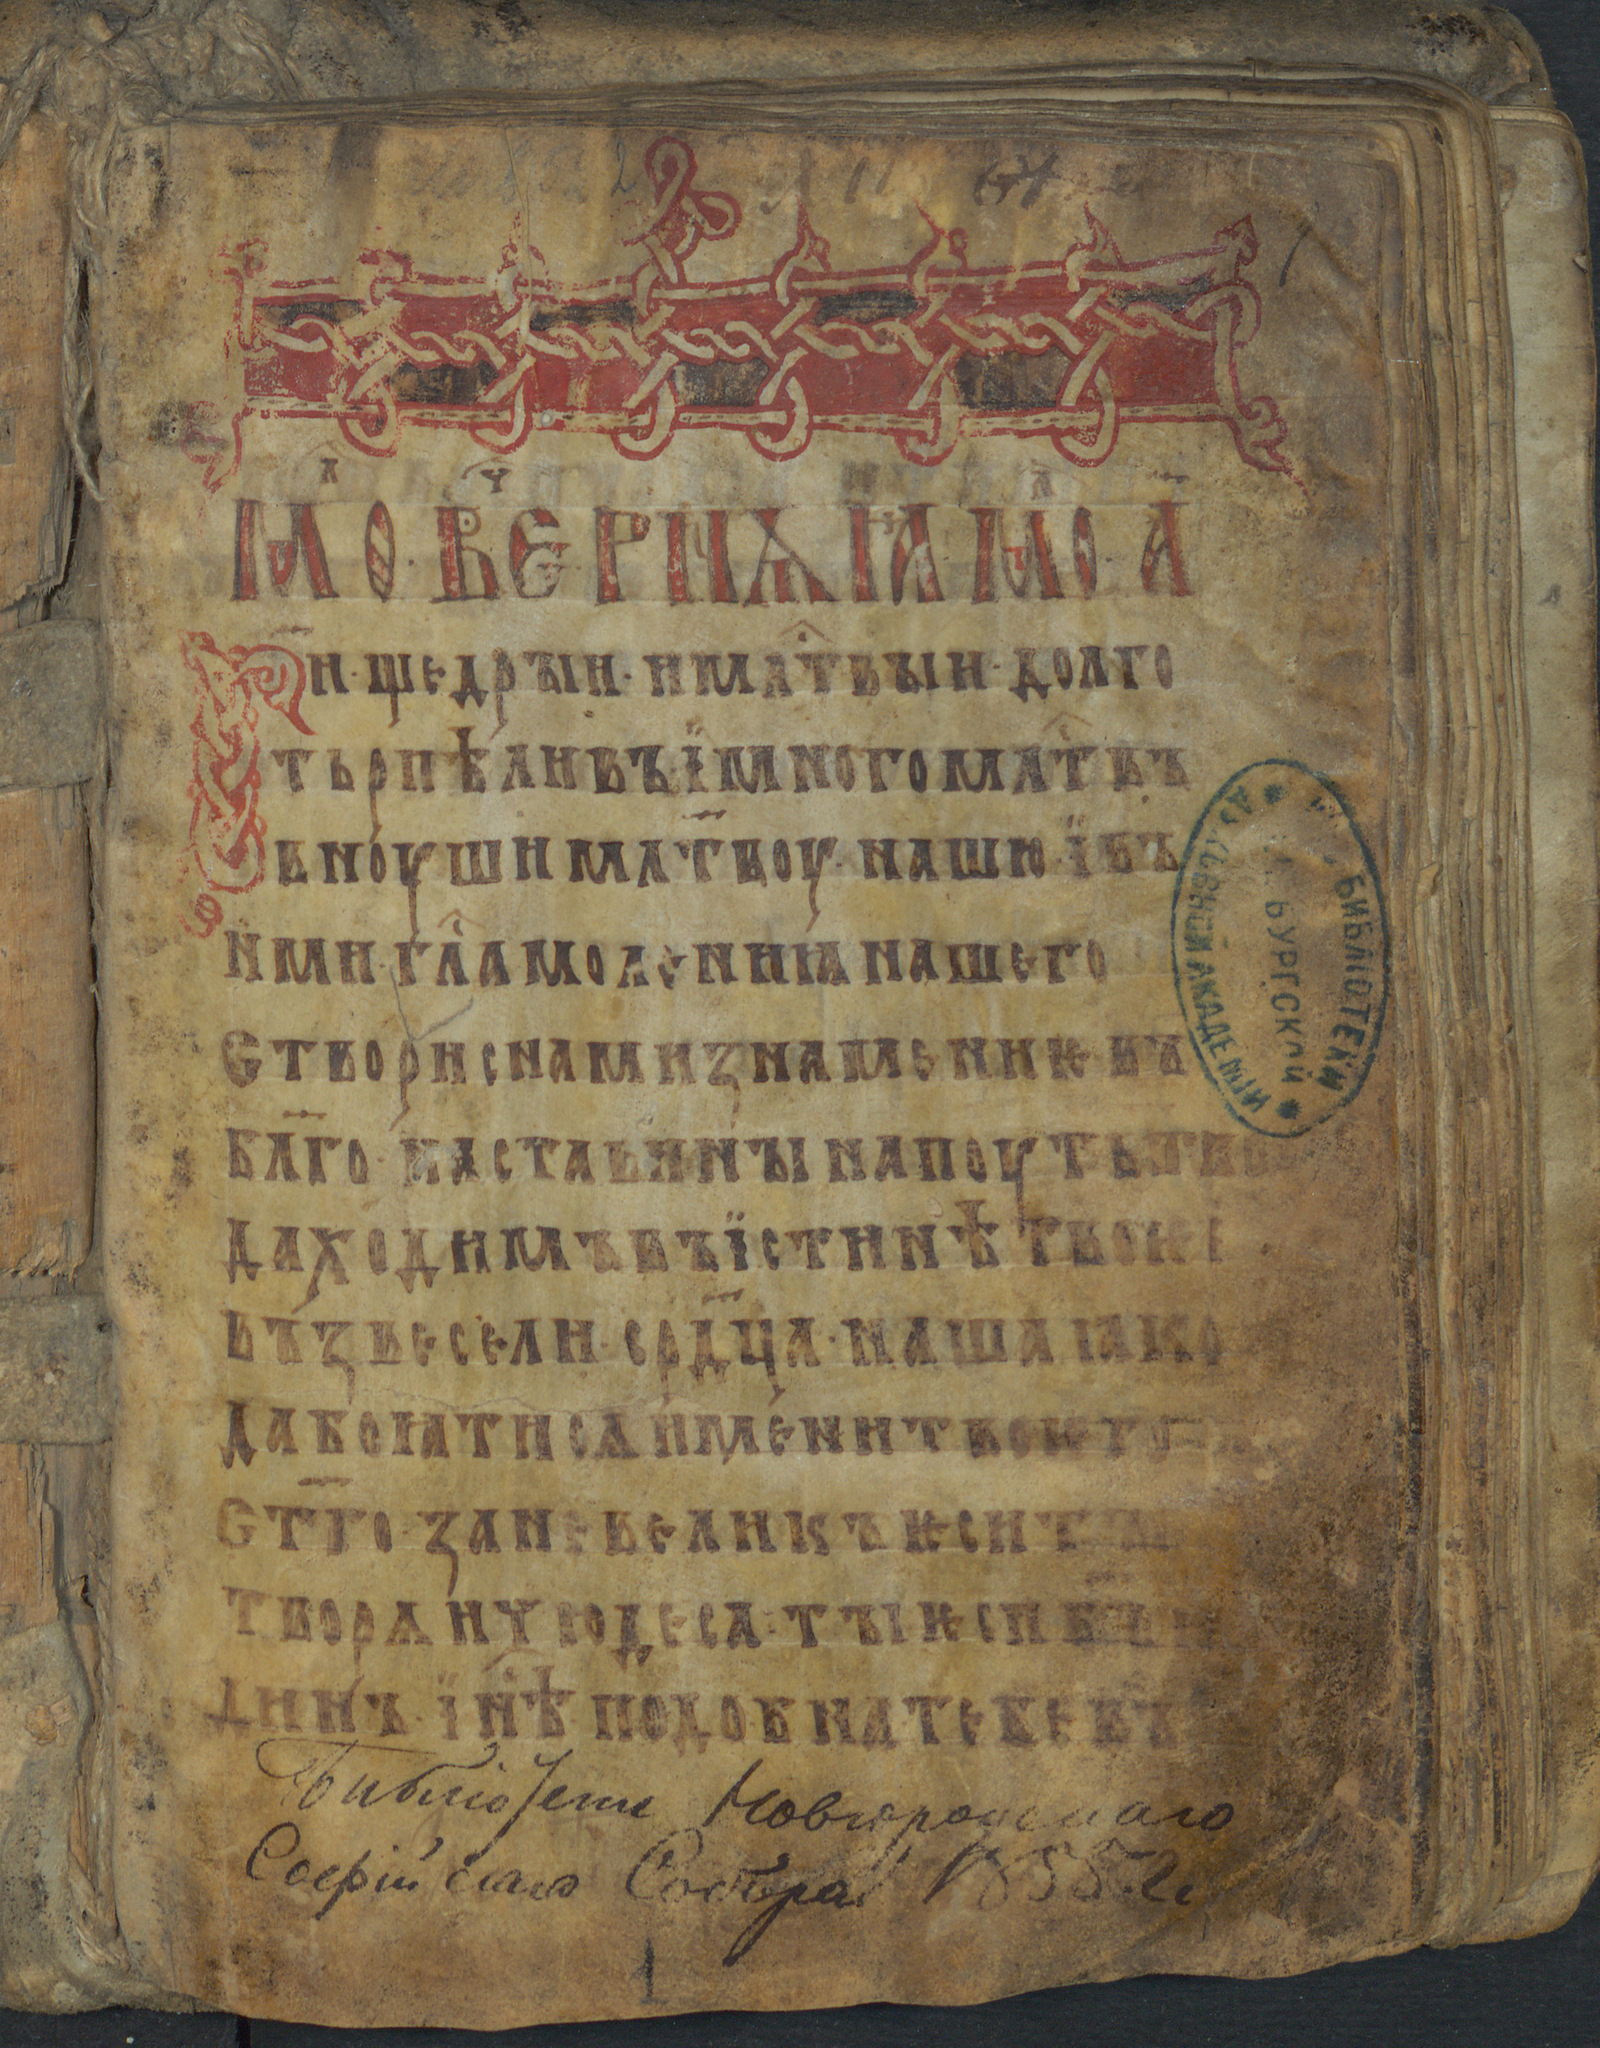 мл҃о вечернѧꙗ мл҃о а
ги щедрꙑи· и млт҃вꙑи· долго
тьрпѣливъ· їмногомлт҃въ
вноуши млт҃воу· нашю· ївъ
нми· гла҃ молениꙗ нашего
створи с нами знамение въ
бл҃го· настави нꙑ напоуть тво
да ходимъ въ їстинѣ твоѥ
възвесели· срд҃ца· наша ꙗко
да боꙗтисѧ имени твоѥго
ст҃го· зане великъ ѥси т
творѧи чюдеса· тꙑ ѥси б҃ъ
динъ· ї нѣ подобна тебе въ
Библіотеки Новгородскаго
Софійскаго Собора 1855. г.
БИБЛІОТЕКИ
БУРГСКОЙ
ДУХОВНОЙ АКАДЕМІИ